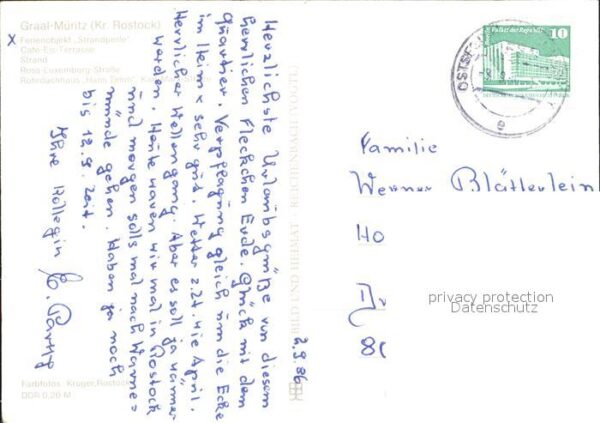 Graal-Müritz (Kr. Rostock)
Ferienobjekt „Strandperle"
Café-Eis-Terrasse
Strand
Rosa-Luxemburg-Straße
x
Herzlichste Urlaubsgrüße von diesem
herrlichen Fleckchen Erde. Glück mit dem
Quartier. Verpflegung gleich um die Ecke
im Heim x sehr gut. Wetter z.Zt. wie April.
Herrlicher Wellengang. Aber es soll ja wärmer
werden. Heute waren wir mal in Rostock
und morgen solls mal nach Warne=
münde gehen. Haben ja noch
bis 13.9. Zeit.
Ihre Kollegin
2.9.86
BILD UND HEIMAT · REICHENBACH (VOGTL)
Farbfotos: Kruger, Rostock
DDR 0,20 M
Palast der Republik 10
DDR
OSTSEE
e
Familie
Werner Blätterlein
privacy protection
Datenschutz